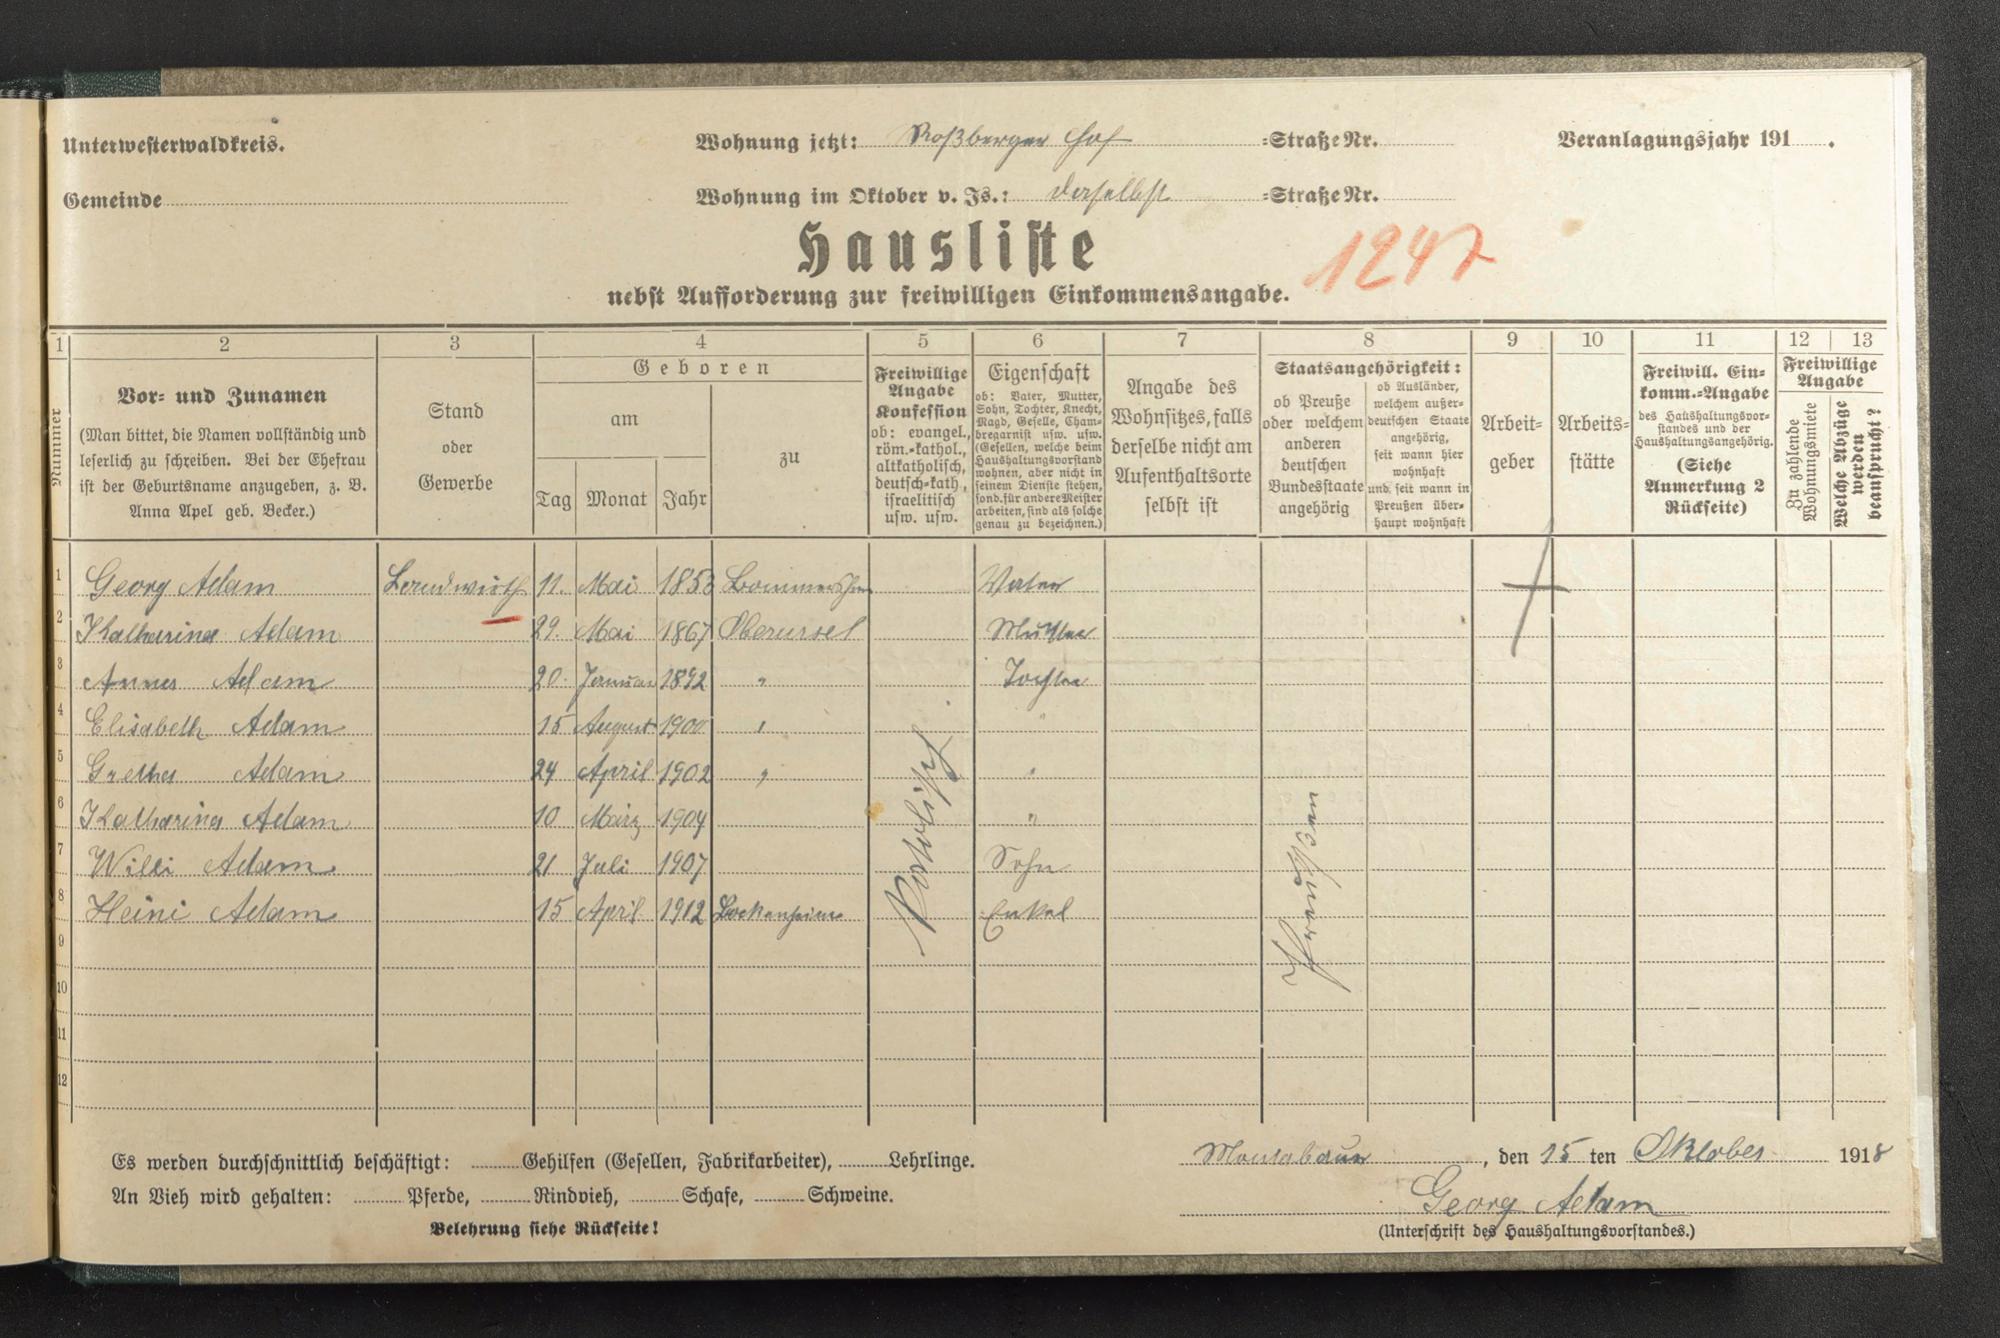 Unterwesterwaldkreis.
Wohnung jetzt: Roßberger Hof =Straße Nr.
Veranlagungsjahr 191 .
Gemeinde
Wohnung im Oktober v. Js.: daselbst =Straße Nr.
Hausliste
1247
nebst Aufforderung zur freiwilligen Einkommensangabe.
1 2 3 4 5 6 7 8 9 10 11 12 13
Nummer
Vor- und Zunamen
(Man bittet, die Namen vollständig und
leserlich zu schreiben. Bei der Ehefrau
ist der Geburtsname anzugeben, z. B.
Anna Apel geb. Becker.)
Stand
oder
Gewerbe
Geboren
am
Tag Monat Jahr
zu
Freiwillige
Angabe
Konfession
ob: evangel.,
röm.-kathol.,
altkatholisch,
deutsch-kath.,
israelitisch
usw. usw.
Eigenschaft
ob: Vater, Mutter,
Sohn, Tochter, Knecht,
Magd, Geselle, Cham-
bregarnist usw. usw.
(Gesellen, welche beim
Haushaltungsvorstand
wohnen, aber nicht in
seinem Dienste stehen,
sond. für andere Meister
arbeiten, sind als solche
genau zu bezeichnen.)
Angabe des
Wohnsitzes, falls
derselbe nicht am
Aufenthaltsorte
selbst ist
Staatsangehörigkeit:
ob Preuße
oder welchem
anderen
deutschen
Bundesstaate
angehörig
ob Ausländer,
welchem außer-
deutschen Staate
angehörig,
seit wann hier
wohnhaft
und seit wann in
Preußen über-
haupt wohnhaft
Arbeit-
geber
Arbeits-
stätte
Freiwill. Ein-
komm.-Angabe
des Haushaltungsvor-
standes und der
Haushaltungsangehörig.
(Siehe
Anmerkung 2
Rückseite)
Freiwillige
Angabe
Zu zahlende
Wohnungsmiete
Welche Abzüge
werden
beansprucht?
1 Georg Adam Landwirth 11. Mai 1853 Bommersheim Vater
2 Katharina Adam 29. Mai 1867 Oberursel Mutter
3 Anna Adam 20. Januar 1892 " Tochter
4 Elisabeth Adam 15 August 1900 " "
5 Gretha Adam 24 April 1902 " "
6 Katharina Adam 10 März 1904 "
7 Willi Adam 21 Juli 1907 Sohn
8 Heini Adam 15 April 1912 Bockenheim Enkel
Katholisch
Preußen
9
10
11
12
Es werden durchschnittlich beschäftigt: Gehilfen (Gesellen, Fabrikarbeiter), Lehrlinge.
Montabaur, den 15 ten Oktober 1918
An Vieh wird gehalten: Pferde, Rindvieh, Schafe, Schweine.
Georg Adam
Belehrung siehe Rückseite!
(Unterschrift des Haushaltungsvorstandes.)